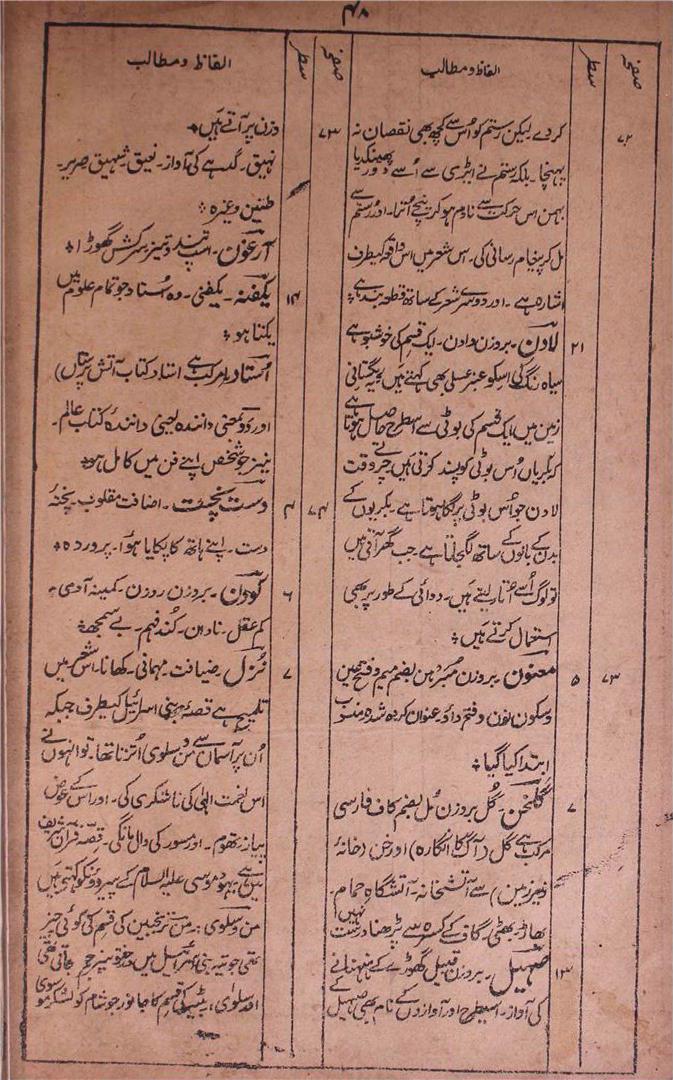 ۴۸
صفحہ
سطر
الفاظ و مطالب
۷۲
کردے لیکن رستم کو اُس سے کچھ بھی نقصان نہ
پہنچا۔ بلکہ رستم نے ایڑی سے اُسے دور پھینکدیا
بہمن اس حرکت سے نادم ہو کر نیچے اُترا۔ اور رستم سے
مل کر پیغام رسانی کی۔ اس شعر میں اس واقعہ کیطرف
اشارہ ہے۔ اور دوسرے شعر کے ساتھ قطعہ بند ہے
۲۱
لادن۔ بروزن دادن۔ ایک قسم کی خوشبو ہے
سیاہ رنگ کی اسکو عنبر عسلی بھی کہتے ہیں
زمین میں ایک قسم کی بوٹی سے اسطرح حاصل ہوتا ہے
کہ بکریاں اُس بوٹی کو پسند کرتی ہیں چرتے وقت
لادن جو اُس بوٹی پر لگا ہوتا ہے۔ بکریوں کے
بدن کے بالوں کے ساتھ لگجاتا ہے۔ جب گھر آتی ہیں
تو لوگ اُسے اُتار لیتے ہیں۔ دوائی کے طور پر بھی
استعمال کرتے ہیں
۷۳
۵
معنون۔ بروزن مبرہن بضم میم و فتح عین
و سکون نون و فتح واؤ۔ عنوان کردہ شدہ منسوب
ابتدا کیا گیا
۷
گلخن۔ گُل بروزن مُل بضم کاف فارسی
مرکب ہے گل (آگ کا انگارہ) اور خن (خانۂ
زیرزمین) سے آتشخانہ۔ آتشگاہ حمام۔
بھاڑ۔ بھٹی۔ گاف کے کسرہ سے پڑھنا درست نہیں
۱۳
صہیل۔ بروزن قبیل گھوڑے کے ہنہنانے
کی آواز۔ اسیطرح اور آوازوں کے نام بھی صہیل کے
صفحہ
سطر
الفاظ و مطالب
۷۳
وزن پر آتے ہیں
نہیق۔ گدہے کی آواز۔ نعیق۔ شہیق۔ صریر۔
طنین وغیرہ
آرغون۔ اسپ تند و تیز سرکش گھوڑا
۱۴
یکفنہ۔ یکفنی۔ وہ اُستاد جو تمام علوم میں
یکتا ہو
اُستاد (مرکب ہے استا۔ کتاب آتش پرستاں)
اور وَد بمعنی دانندہ یعنی دانندۂ کتاب عالم۔
نیز جو شخص اپنے فن میں کامل ہو
۷۴
۴
دست پخت۔ اضافت مقلوب۔ پختۂ
دست۔ اپنے ہاتھ کا پکایا ہوا۔ پروردہ
۶
کودن۔ بروزن روزن۔ کمینہ آدمی۔
کم عقل۔ نادان۔ کُند فہم۔ بے سمجھ
۷
نُزل۔ ضیافت۔ مہمانی۔ کھانا۔ اس شعر میں
تلمیح ہے قصۂ بنی اسرائیل کیطرف جبکہ
اُن پر آسمان سے من و سلویٰ اُترتا تھا۔ تو انہوں نے
اس نعمت الٰہی کی ناشکری کی۔ اور اس کے عوض
پیاز۔ تھوم۔ اور مسور کی دال مانگی۔ قصہ قرآن شریف
میں ہے یہود موسیٰ علیہ السلام کے پیرووں کو کہتے ہیں
من و سلویٰ۔ من ترنجبین کی قسم کی کوئی چیز
تھی جو بنی اسرائیل میں درختوں پر جم جاتی تھی
اور سلویٰ، بٹیر کی قسم کا جانور جو شام کو لشکر موسیٰ